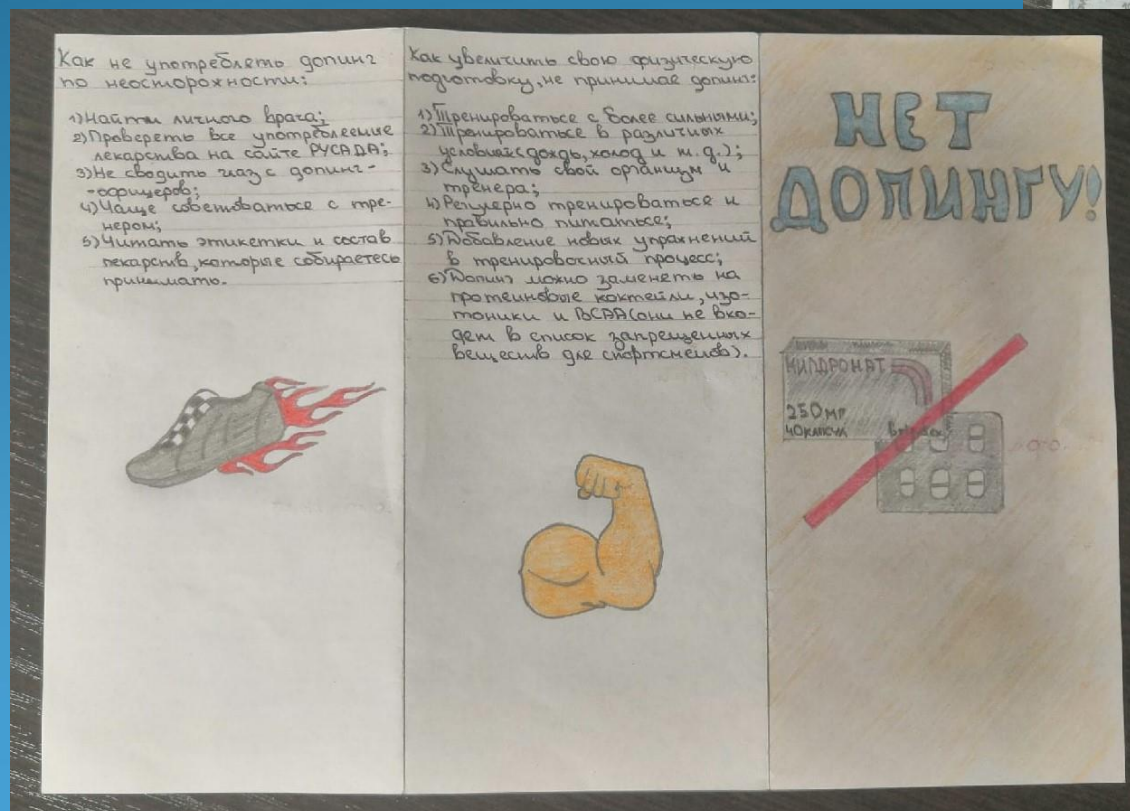 Как не употреблять допинг
по неосторожности:
1) Найти личного врача;
2) Проверять все употребляемые
лекарства на сайте РУСАДА;
3) Не сводить глаз с допинг-
-офицеров;
4) Чаще советоваться с тре-
нером;
5) Читать этикетки и состав
лекарств, которые собираетесь
принимать.
Как увеличить свою физическую
подготовку, не принимая допинг:
1) Тренироваться с более сильными;
2) Тренироваться в различных
условиях (дождь, холод и т.д.);
3) Слушать свой организм и
тренера;
4) Регулярно тренироваться и
правильно питаться;
5) Добавление новых упражнений
в тренировочный процесс;
6) Допинг можно заменять на
протеиновые коктейли, изо-
тоники и BCAA (они не вхо-
дят в список запрещенных
веществ для спортсменов).
НЕТ
ДОПИНГУ!
МИЛДРОНАТ
250 мг
40 капсул